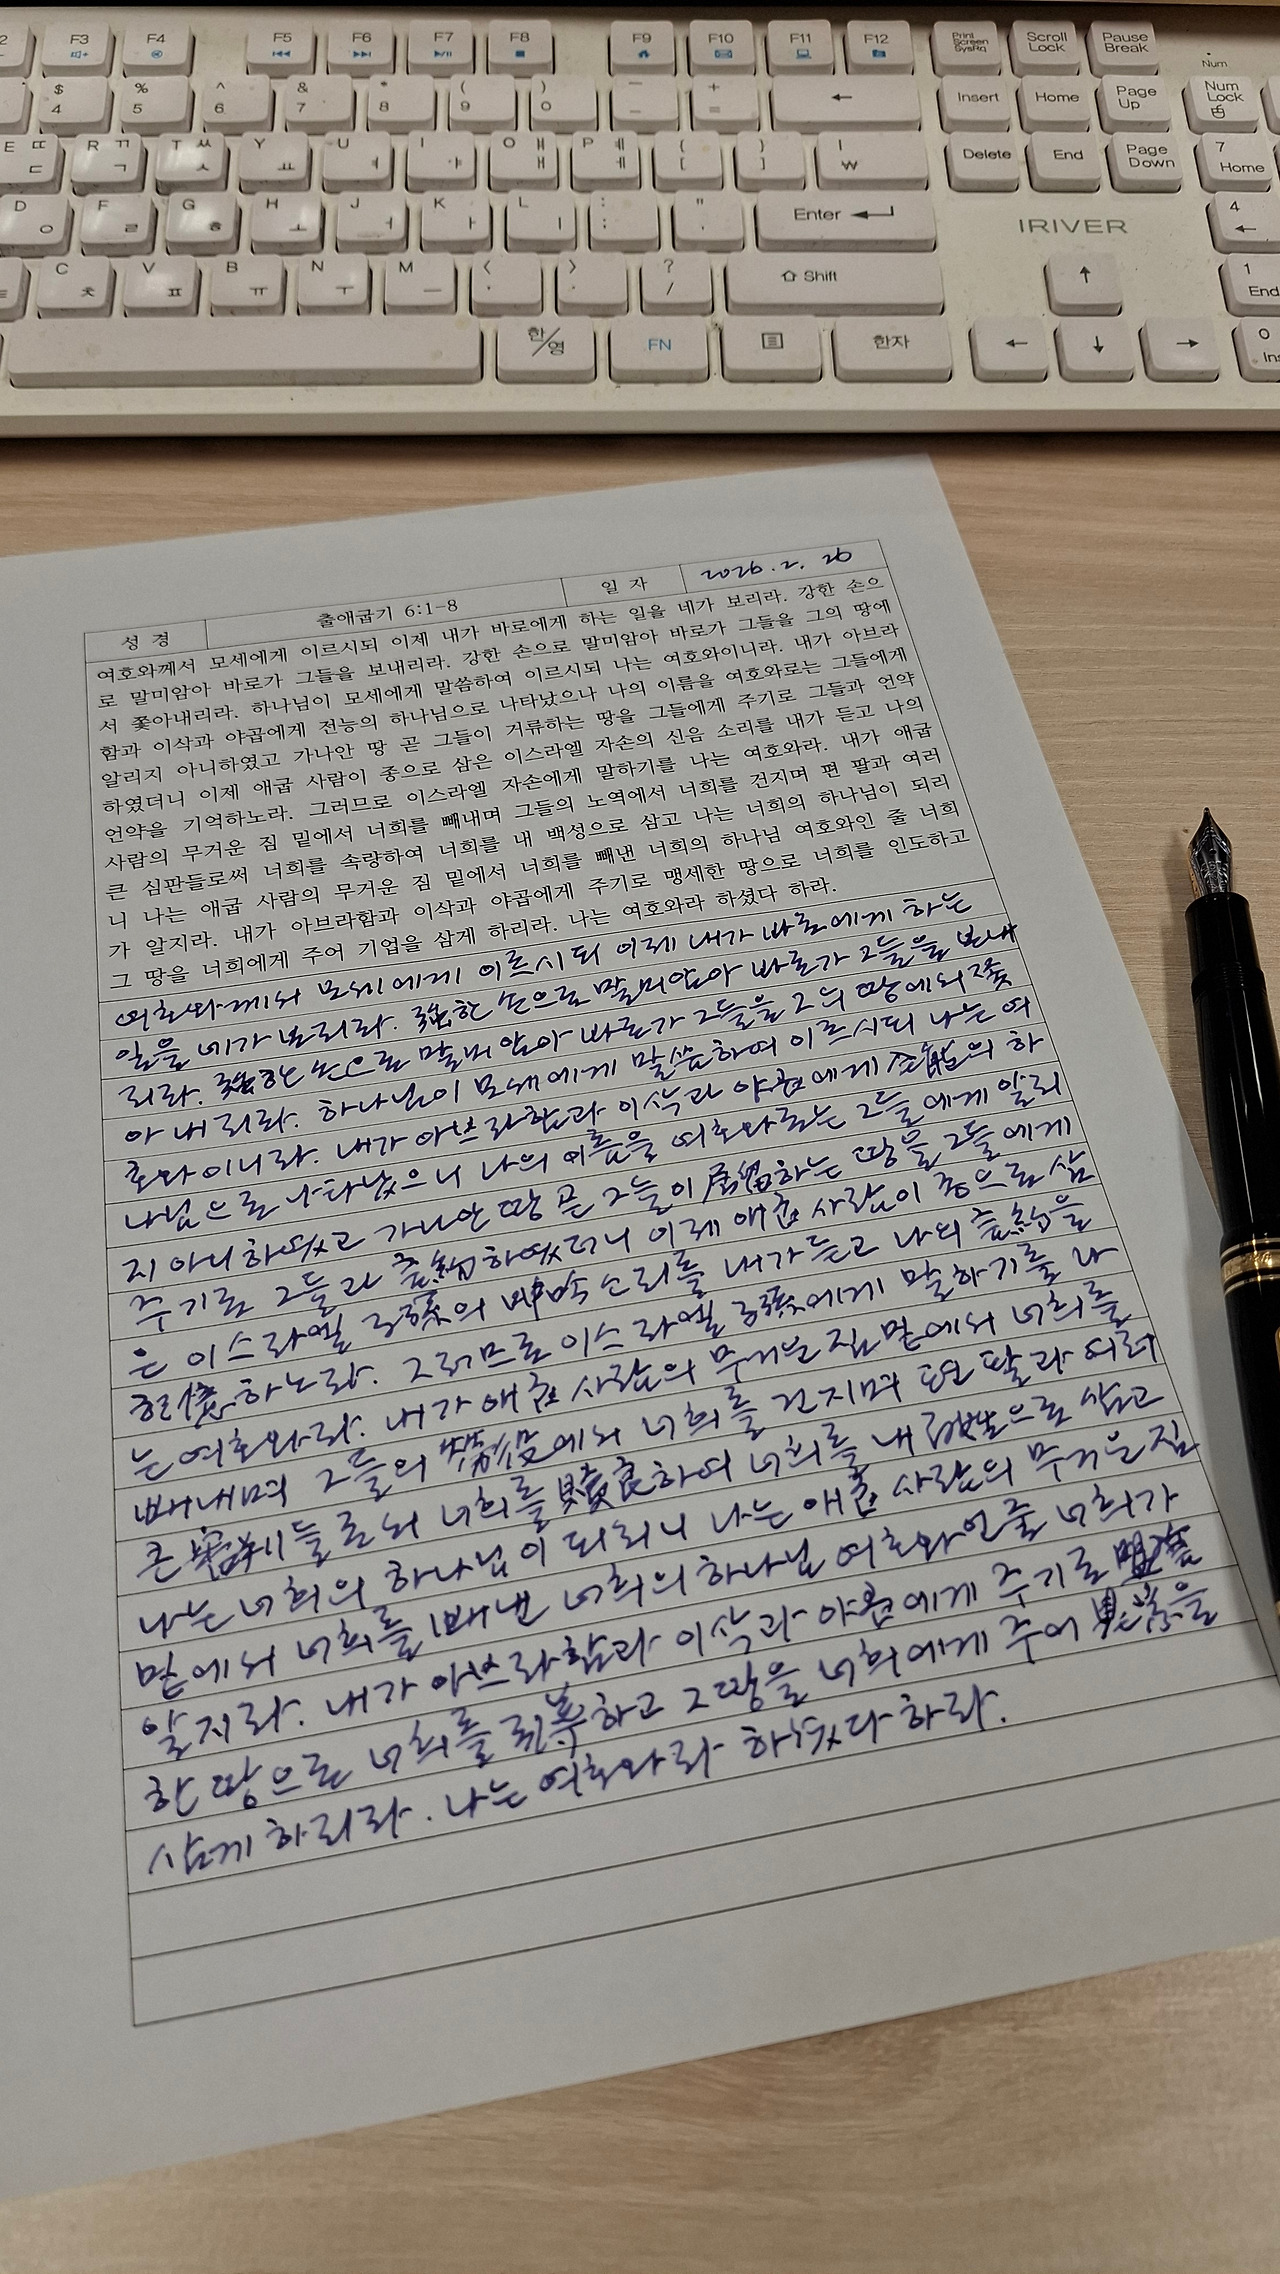 2 F3 F4 F5 F6 F7 F8 F9 F10 F11 F12 Print Screen SysRq Scroll Lock Pause Break
Num
$ 4 % 5 ^ 6 & 7 * 8 ( 9 ) 0 _ - + = ← Insert Home Page Up Num Lock
E ㄸ ㄷ R ㄲ ㄱ T ㅆ ㅅ Y ㅛ U ㅕ I ㅑ O ㅒ ㅐ P ㅖ ㅔ { [ } ] | ₩ Delete End Page Down 7 Home
D ㅇ F ㄹ G ㅎ H ㅗ J ㅓ K ㅏ L ㅣ : ; " ' Enter IRIVER 4 ←
C ㅊ V ㅍ B ㅠ N ㅜ M ㅡ < , > . ? / ⇧ Shift ↑ 1 End
한/영 FN 한자 ← ↓ → 0 Ins
성 경 출애굽기 6:1-8 일 자 2026. 2. 26
여호와께서 모세에게 이르시되 이제 내가 바로에게 하는 일을 네가 보리라. 강한 손으
로 말미암아 바로가 그들을 보내리라. 강한 손으로 말미암아 바로가 그들을 그의 땅에
서 쫓아내리라. 하나님이 모세에게 말씀하여 이르시되 나는 여호와이니라. 내가 아브라
함과 이삭과 야곱에게 전능의 하나님으로 나타났으나 나의 이름을 여호와로는 그들에게
알리지 아니하였고 가나안 땅 곧 그들이 거류하는 땅을 그들에게 주기로 그들과 언약
하였더니 이제 애굽 사람이 종으로 삼은 이스라엘 자손의 신음 소리를 내가 듣고 나의
언약을 기억하노라. 그러므로 이스라엘 자손에게 말하기를 나는 여호와라. 내가 애굽
사람의 무거운 짐 밑에서 너희를 빼내며 그들의 노역에서 너희를 건지며 편 팔과 여러
큰 심판들로써 너희를 속량하여 너희를 내 백성으로 삼고 나는 너희의 하나님이 되리
니 나는 애굽 사람의 무거운 짐 밑에서 너희를 빼낸 너희의 하나님 여호와인 줄 너희
가 알지라. 내가 아브라함과 이삭과 야곱에게 주기로 맹세한 땅으로 너희를 인도하고
그 땅을 너희에게 주어 기업을 삼게 하리라. 나는 여호와라 하셨다 하라.
여호와께서 모세에게 이르시되 이제 내가 바로에게 하는
일을 네가 보리라. 強한 손으로 말미암아 바로가 그들을 보내
리라. 強한 손으로 말미암아 바로가 그들을 그의 땅에서 쫓
아내리라. 하나님이 모세에게 말씀하여 이르시되 나는 여
호와이니라. 내가 아브라함과 이삭과 야곱에게 全能의 하
나님으로 나타났으니 나의 이름을 여호와로는 그들에게 알리
지 아니하였고 가나안 땅 곧 그들이 居留하는 땅을 그들에게
주기로 그들과 言約하였더니 이제 애굽 사람이 종으로 삼
은 이스라엘 子孫의 呻吟소리를 내가 듣고 나의 言約을
記憶하노라. 그러므로 이스라엘 子孫에게 말하기를 나
는 여호와라. 내가 애굽 사람의 무거운 짐 밑에서 너희를
빼내며 그들의 勞役에서 너희를 건지며 편 팔과 여러
큰 審判들로써 너희를 贖良하여 너희를 내 百姓으로 삼고
나는 너희의 하나님이 되리니 나는 애굽 사람의 무거운 짐
밑에서 너희를 빼낸 너희의 하나님 여호와인줄 너희가
알지라. 내가 아브라함과 이삭과 야곱에게 주기로 盟誓
한 땅으로 너희를 引導하고 그 땅을 너희에게 주어 基業을
삼게 하리라. 나는 여호와라 하셨다 하라.